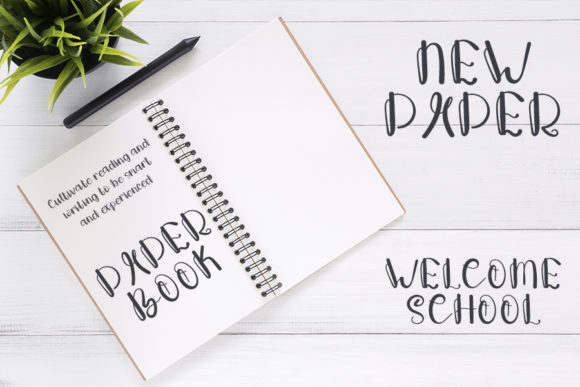 Cultivate reading and
writing to be smart
and experienced
PAPER
BOOK
NEW
PAPER
WELCOME
SCHOOL